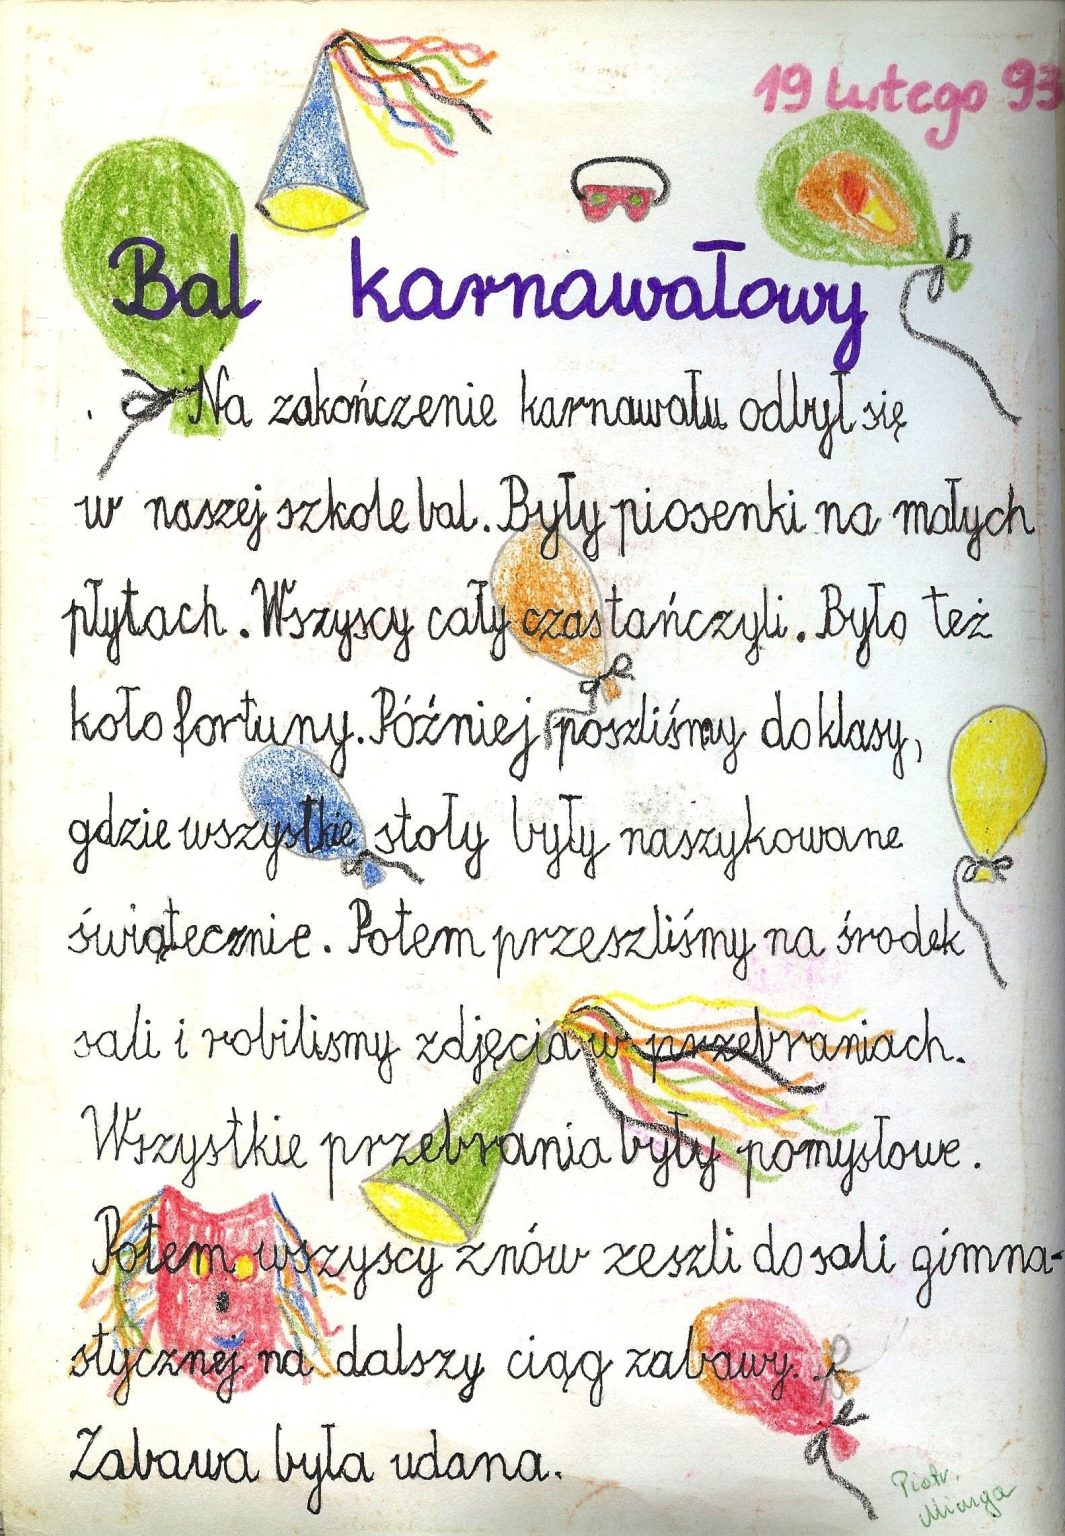 19 lutego 93
Bal karnawałowy
Na zakończenie karnawału odbył się
w naszej szkole bal. Były piosenki na małych
płytach. Wszyscy cały czas tańczyli. Było też
koło fortuny. Później poszliśmy do klasy,
gdzie wszystkie stoły były naszykowane
świątecznie. Potem przeszliśmy na środek
sali i robilismy zdjęcia w przebraniach.
Wszystkie przebrania były pomysłowe.
Potem wszyscy znów zeszli do sali gimna-
stycznej na dalszy ciąg zabawy.
Zabawa była udana.
Piotr.
Miarga